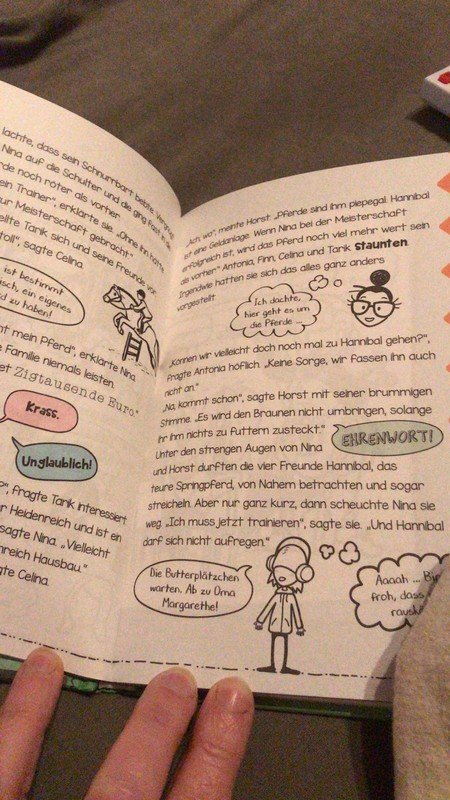 lachte, dass sein Schnurrbart bebte.
Nina auf die Schulter und die ging
rde noch röter als vorher.
ein Trainer", erklärte sie. „Ohne ihn hätte
zur Meisterschaft gebracht."
ellte Tarik sich und seine Freunde vor.
toll", sagte Celina.
ist bestimmt
isch, ein eigenes
d zu haben!
ht mein Pferd", erklärte Nina.
e Familie niemals leisten.
et Zigtausende Euro."
Krass.
Unglaublich!
?", fragte Tarik interessiert.
r Heidenreich und ist ein
sagte Nina. „Vielleicht
nreich Hausbau."
gte Celina.
„Ach wo", meinte Horst. „Pferde sind ihm piepegal. Hannibal
ist eine Geldanlage. Wenn Nina bei der Meisterschaft
erfolgreich ist, wird das Pferd noch viel mehr wert sein
als vorher." Antonia, Finn, Celina und Tarik staunten.
Irgendwie hatten sie sich das alles ganz anders
vorgestellt.
Ich dachte,
hier geht es um
die Pferde ...
„Können wir vielleicht doch noch mal zu Hannibal gehen?",
fragte Antonia höflich. „Keine Sorge, wir fassen ihn auch
nicht an."
„Na, kommt schon", sagte Horst mit seiner brummigen
Stimme. „Es wird den Braunen nicht umbringen, solange
ihr ihm nichts zu futtern zusteckt."
EHRENWORT!
Unter den strengen Augen von Nina
und Horst durften die vier Freunde Hannibal, das
teure Springpferd, von Nahem betrachten und sogar
streicheln. Aber nur ganz kurz, dann scheuchte Nina sie
weg. „Ich muss jetzt trainieren", sagte sie. „Und Hannibal
darf sich nicht aufregen."
Die Butterplätzchen
warten. Ab zu Oma
Margarethe!
Aaaah ... Bin
froh, dass